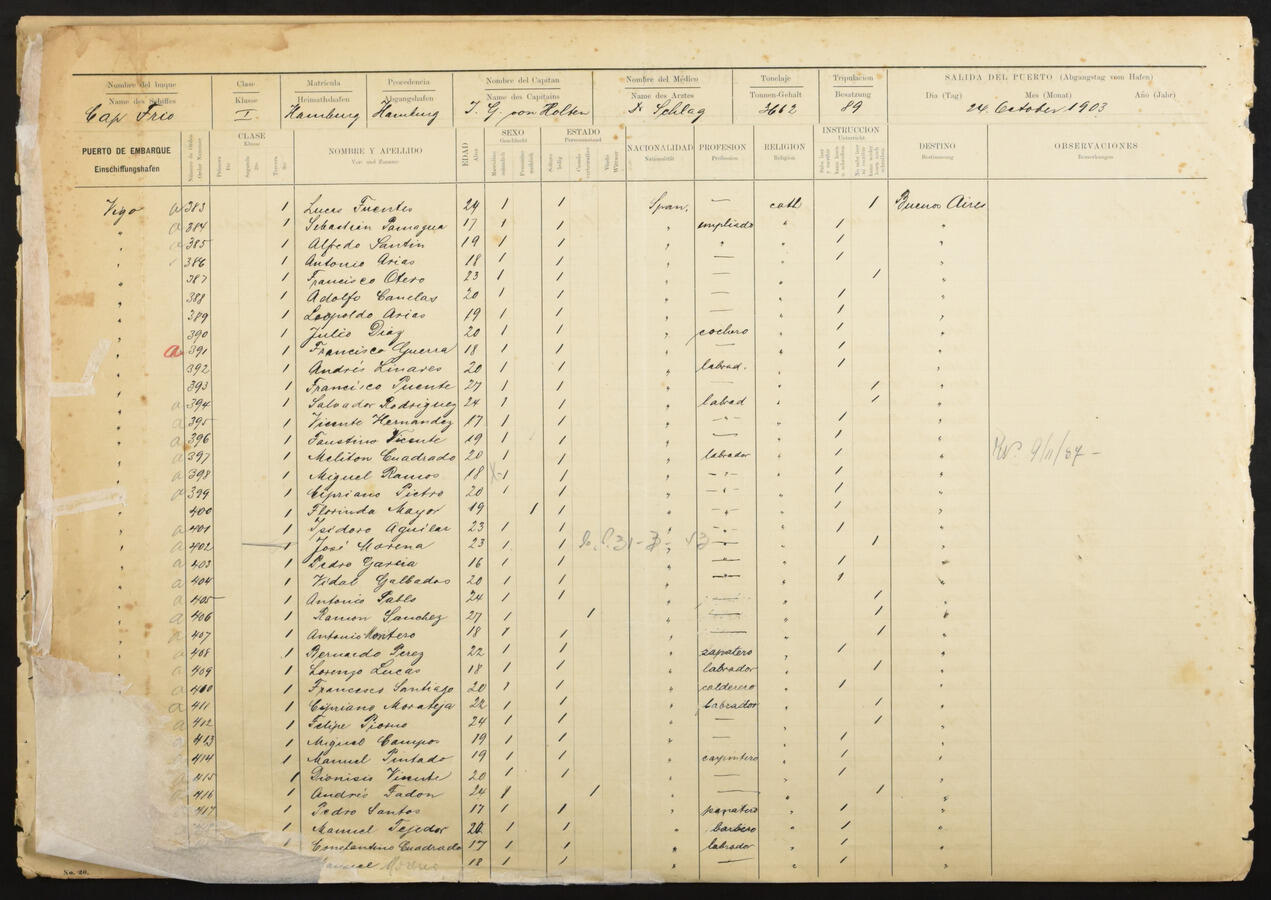 Nombre del buque Clase Matricula Procedencia Nombre del Capitan Nombre del Médico Tonelaje Tripulacion SALIDA DEL PUERTO (Abgangstag vom Hafen)
Name des Schiffes Klasse Heimathshafen Abgangshafen Name des Capitains Name des Arztes Tonnen-Gehalt Besatzung Dia (Tag) Mes (Monat) Año (Jahr)
Cap Frio I. Hamburg Hamburg J. G. von Holten Dr Schlag 3612 89 24. October 1903
PUERTO DE EMBARQUE CLASE NOMBRE Y APELLIDO EDAD SEXO ESTADO NACIONALIDAD PROFESION RELIGION INSTRUCCION DESTINO OBSERVACIONES
Einschiffungshafen Klasse Vor- und Zuname Alter Geschlecht Personenstand Nationalität Profession Religion Unterricht Bestimmung Bemerkungen
Vigo a 383 1 Lucas Fuentes 24 1 1 Span. — cath 1 Buenos Aires
" a 384 1 Sebastián Pamagua 17 1 1 " empliado " 1 "
" a 385 1 Alfredo Santin 19 1 1 " " " 1 "
" 386 1 Antonio Arias 18 1 1 " — " 1 "
" 387 1 Francisco Otero 23 1 1 " — " 1 "
" 388 1 Adolfo Canelas 20 1 1 " — " 1 "
" 389 1 Leopoldo Arias 19 1 1 " — " 1 "
" 390 1 Julio Diaz 20 1 1 " cochero " 1 "
" a 391 1 Francisco Guerra 18 1 1 " — " 1 "
" 392 1 Andrés Linares 20 1 1 " labrad. " 1 "
" 393 1 Francisco Puente 27 1 1 " — " 1 "
" a 394 1 Salvador Rodriguez 24 1 1 " labrad " 1 "
" a 395 1 Vicente Hernandez 17 1 1 " -"- " 1 "
" a 396 1 Faustino Vicente 19 1 1 " — " 1 "
" a 397 1 Meliton Cuadrado 20 1 1 " labrador " 1 " 9/11/84 -
" a 398 1 Miguel Ramos 18 x 1 1 " -"- " 1 "
" a 399 1 Cipriano Pietro 20 1 1 " -"- " 1 "
" 400 1 Florinda Mayor 19 1 1 " — " 1 "
" a 401 1 Isidoro Aguilar 23 1 1 " -"- " 1 "
" a 402 1 José Morena 23 1 1 " — " 1 "
" a 403 1 Pedro Garcia 16 1 1 " — " 1 "
" a 404 1 Vidal Galbados 20 1 1 " — " 1 "
" a 405 1 Antonio Pablo 24 1 1 " — " 1 "
" a 406 1 Ramon Sanchez 27 1 1 " — " 1 "
" a 407 1 Antonio Montero 18 1 1 " — " 1 "
" a 408 1 Bernardo Perez 22 1 1 " sapatero " 1 "
" a 409 1 Lorenzo Lucas 18 1 1 " labrador " 1 "
a 410 1 Francisco Santiago 20 1 1 " calderero " 1 "
a 411 1 Cipriano Morateja 22 1 1 " labrador " 1 "
a 412 1 Felipe Piorno 24 1 1 " — " 1 "
a 413 1 Miguel Campos 19 1 1 " — " 1 "
a 414 1 Manuel Pintado 19 1 1 " carpintero " 1 "
a 415 1 Dionisio Vicente 20 1 1 " — " 1 "
a 416 1 Andrés Fadon 24 1 1 " — " 1 "
417 1 Pedro Santos 17 1 1 " panatero " 1 "
1 Manuel Tejedor 20 1 1 " barbero " 1 "
1 Constantino Cuadrado 17 1 1 " labrador " 1 "
Manuel 18 1 1 " — " 1 "
No. 20.